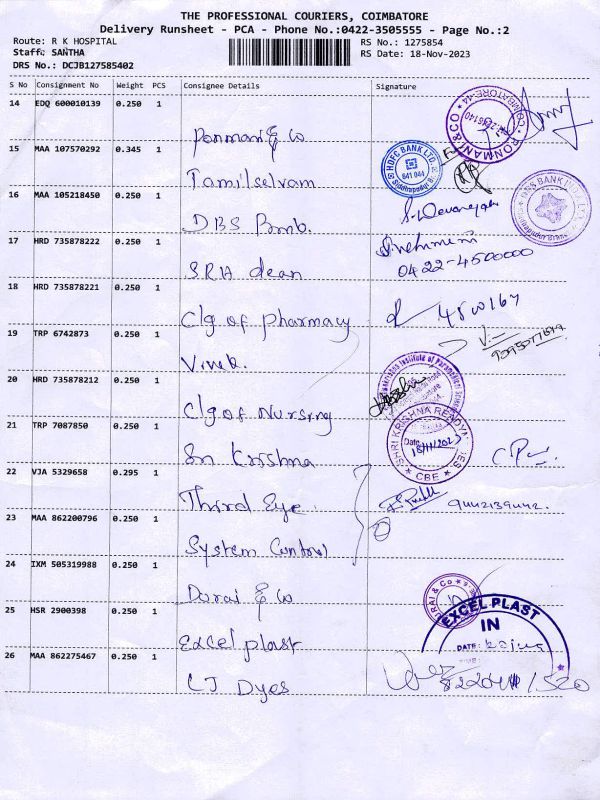 THE PROFESSIONAL COURIERS, COIMBATORE
Delivery Runsheet - PCA - Phone No.:0422-3505555 - Page No.:2
Route: R K HOSPITAL
RS No.: 1275854
Staff: SANTHA
RS Date: 18-Nov-2023
DRS No.: DCJB127585402
S No Consignment No Weight PCS Consignee Details Signature
14 EDQ 600010139 0.250 1 Ponmani & Co
PONMANI & CO
COIMBATORE-44
15 MAA 107570292 0.345 1 Tamilselvam
HDFC BANK LTD.
641 044
16 MAA 105218450 0.250 1 DBS Bomb.
17 HRD 735878222 0.250 1 SRIA dean
0422-4500000
18 HRD 735878221 0.250 1 Clg of pharmacy
19 TRP 6742873 0.250 1 Vivek.
20 HRD 735878212 0.250 1 Clg of Nursing
21 TRP 7087850 0.250 1 Sri Krishna
SHRI KRISHNA
Date
18/11/2023
CBE
22 VJA 5329658 0.295 1 Third Eye
9442139442.
23 MAA 862200796 0.250 1 System Control
24 IXM 505319988 0.250 1 Durai & Co
25 HSR 2900398 0.250 1 Excel plast
EXCEL PLAST
IN
DATE:
26 MAA 862275467 0.250 1 CJ Dyes